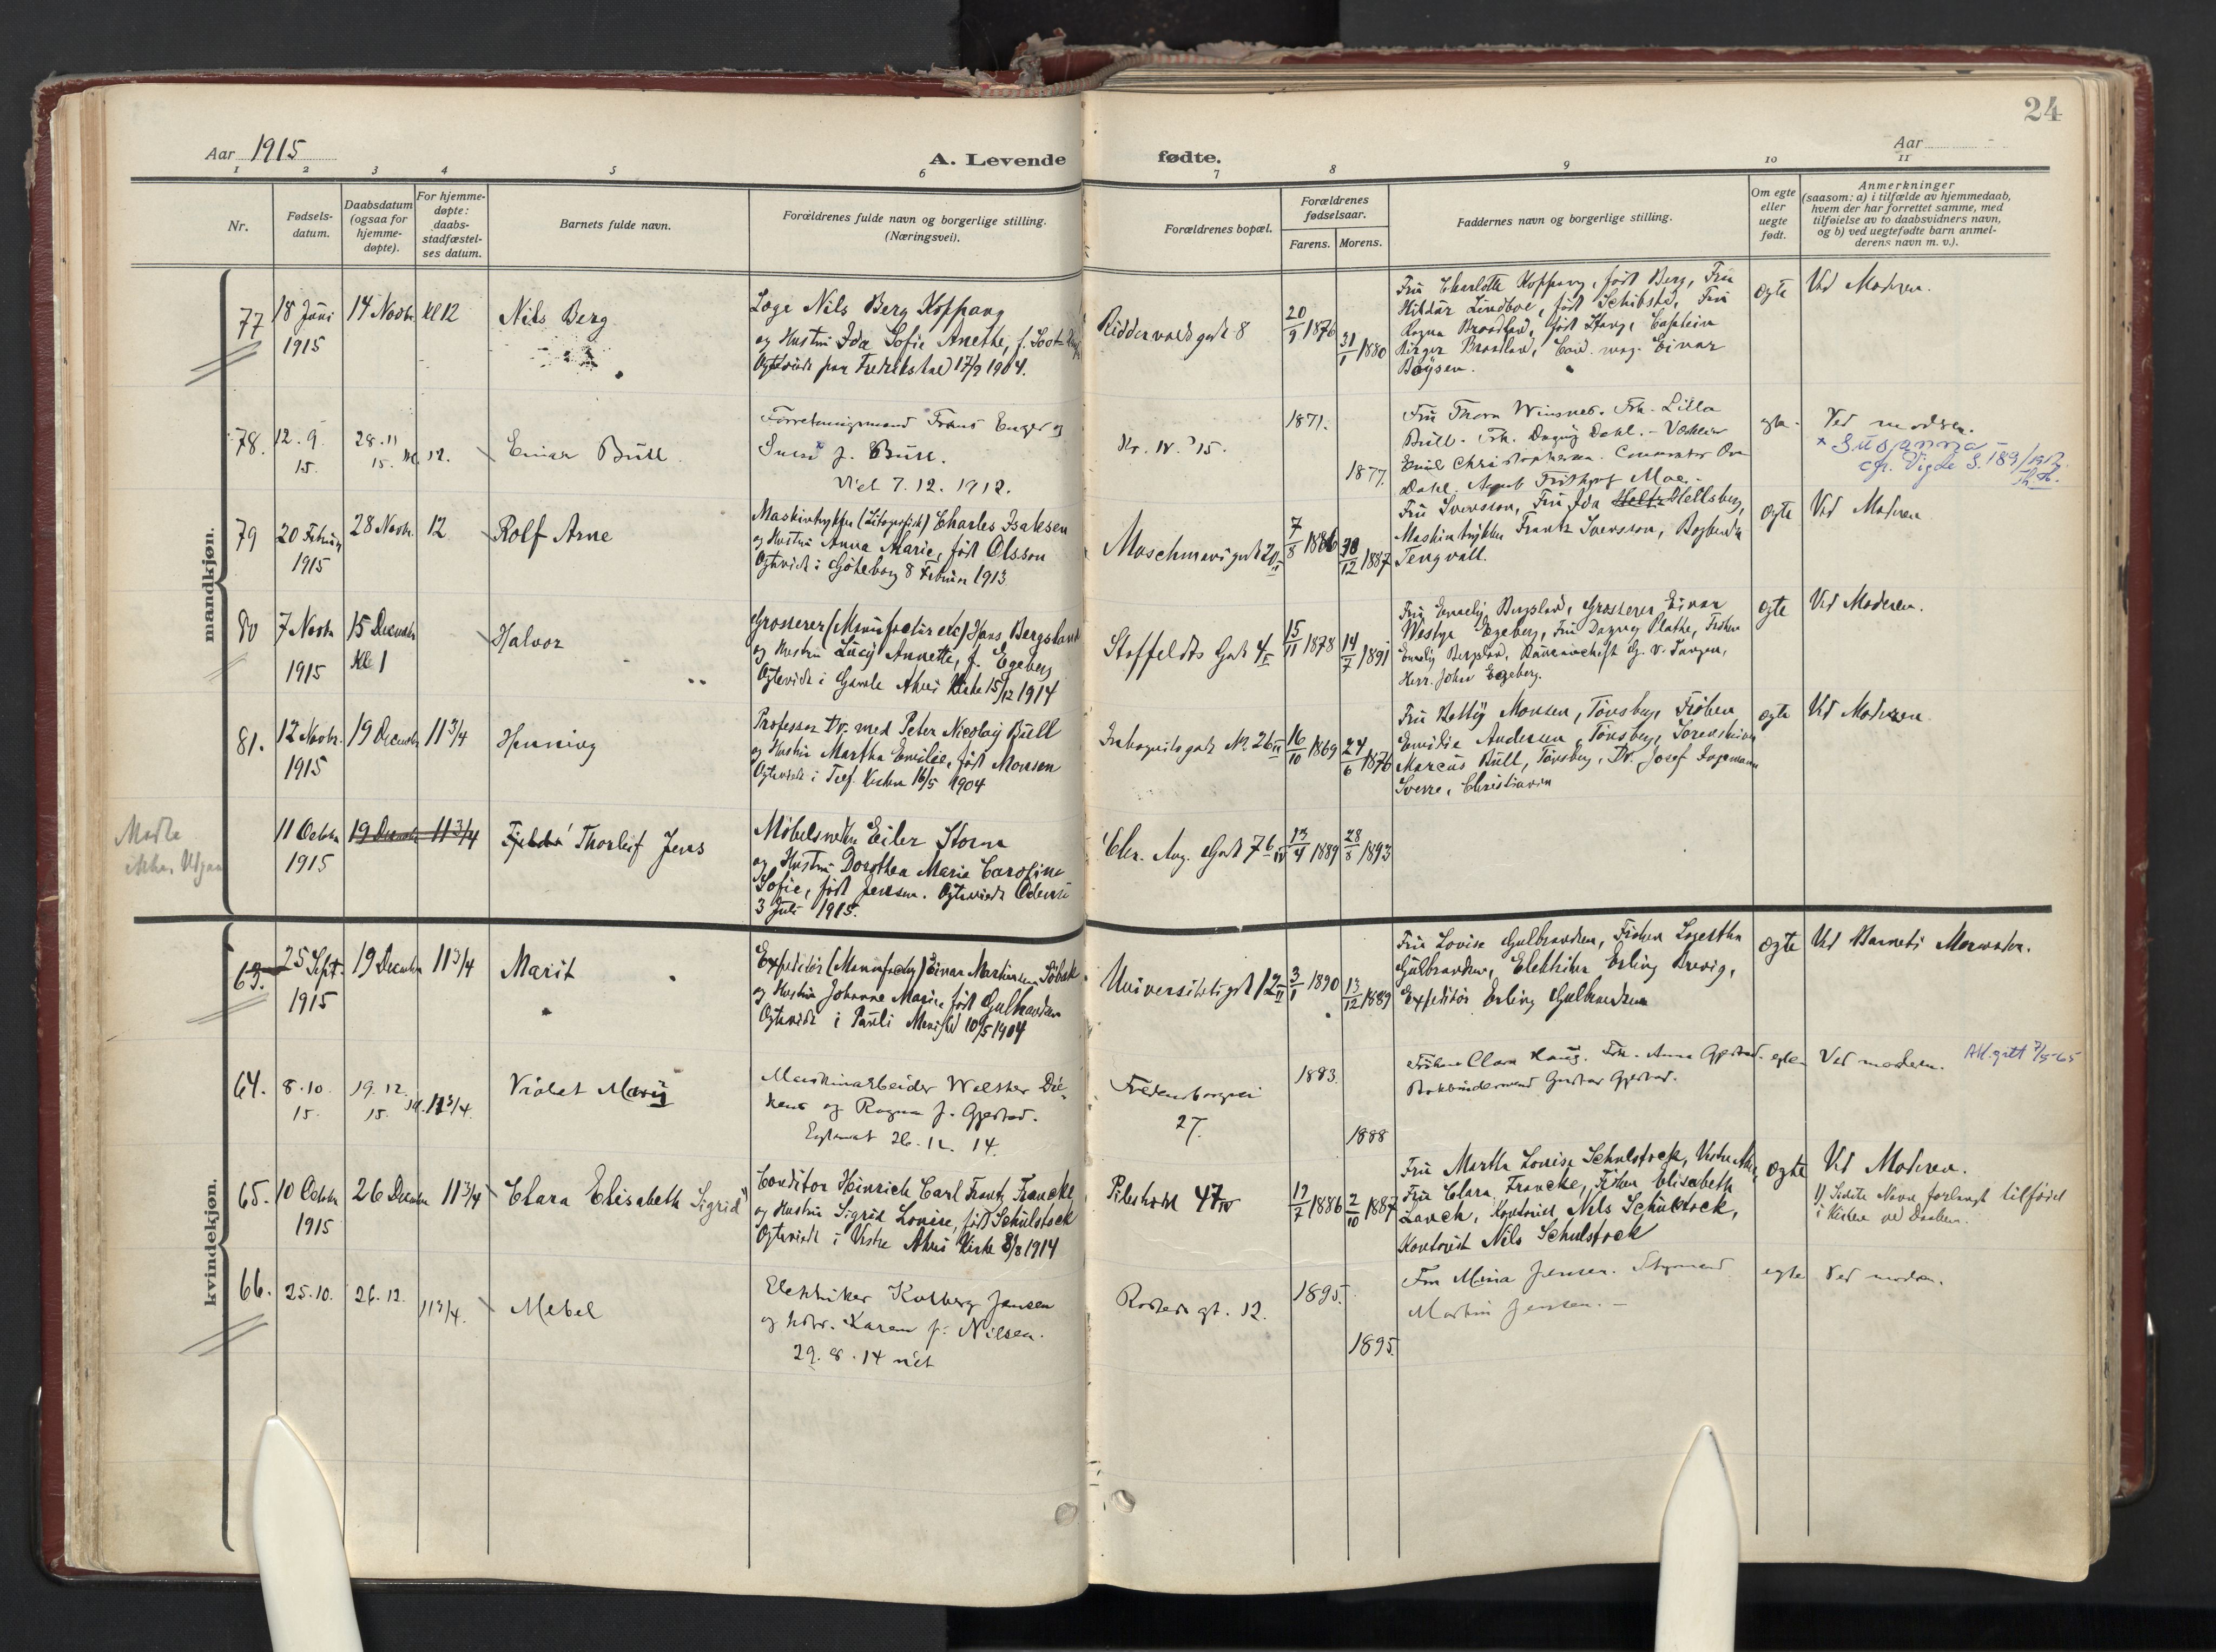 24
Aar 1915
A. Levende fødte.
Aar
1 2 3 4 5 6 7 8 9 10 11
Nr.
Fødsels-
datum.
Daabsdatum
(ogsaa for
hjemme-
døpte).
For hjemme-
døpte:
daabs-
stadfæstel-
ses datum.
Barnets fulde navn.
Forældrenes fulde navn og borgerlige stilling.
(Næringsvei).
Forældrenes bopæl.
Forældrenes
fødselsaar.
Farens. Morens.
Faddernes navn og borgerlige stilling.
Om egte
eller
uegte
født.
Anmerkninger
(saasom: a) i tilfælde av hjemmedaab,
hvem der har forrettet samme, med
tilføielse av to daabsvidners navn,
og b) ved uegtefødte barn anmel-
derens navn m. v.).
mandkjøn.
77
18 Juni
1915
14 Novbr.
Kl 12
Nils Berg
Læge Nils Berg Koppang
og Hustru Ida Sofie Anethe, f.
Ægteviede paa Fredrikstad 17/9 1904.
Riddervoldsgade 8
20/9 1876
31/1 1880
Fru Charlotte Koppang, født Berg, Fru
Hildur Lindboe, født Schibsted, Fru
Ragna Braadland, født Stang, Captein
Birger Braadland, Cand. mag. Einar
Boysen.
egte
Ved Moderen.
78.
12. 9.
15.
28. 11
15.
kl. 12.
Einar Bull
Forretningsmand Frans Enger og
f. Bull.
Viet 7. 12. 1912.
Kr. IV. 15.
1871.
1877.
Fru Thora Winsnes. Frk. Lilla
Bull. Frk. Dagny Dahl. -
Emil Christophersen.
Dahl. Agent Fridtjof Moe. -
egte.
Ved moderen.
* Susanna
cfr. Vigde S. 189/1912.
79
20 Februar
1915
28 Novbr.
12
Rolf Arne
Maskintrykker (Litografisk) Charles Isaksen
og Hustru Anna Marie, født Olsson
Ægteviede i Göteborg 8 Februar 1913
7/8 1886
12 1887
Fru Svensson, Fru Ida Hellsberg,
Maskintrykker Frantz Svensson, Bogbinder
Tengvall.
egte
Ved Moderen
80
7 Novbr
1915
15 Decembr
Kl 1
Halvor
Grosserer (Manufactur etc) Hans Bergsland
og Hustru Lucy Annette, f. Egeberg
Ægteviede i Gamle Akers Kirke 15/12 1914
Stoffeldts Gade 4 II
15/11 1878
14/7 1891
Fru Emely Bergsland, Grosserer Einar
Westye Egeberg, Fru Dagny Plathe, Frøken
Emely Bergsland, G. v. Tangen,
Herr. John Egeberg.
egte
Ved Moderen.
81.
12 Novbr.
1915
19 Decembr
11 3/4
Henning
Professor Dr. med Peter Nicolay Bull
og Hustru Martha Emilie, født Monsen
Ægteviede i Kirken 16/5 1904
Inkognitogade No. 26 II
16/10 1869
24/6 1876
Fru Betty Monsen, Tønsberg, Frøken
Emilie Andersen, Tønsberg, Sorenskriver
Marcus Bull, Tønsberg, Dr. Josef Ingemann
Sverre, Christiania
egte
Ved Moderen
11 Octobr
1915
19 Decembr 11 3/4
Thorleif Jens
Møbelsnedker Eiler Storm
og Hustru Dorothea Marie Caroline
Sofie, født Jensen. Ægteviede Odense
3 Juli 1915.
Chr. Aug. Gade 7 b IV
13/4 1889
28/8 1893
kvindekjøn.
63.
25 Sept.
1915
19 Decembr
11 3/4
Marit
Expeditør (Manufactur) Einar Martinsen
og Hustru Johanne Marie, født Gulbrandsen
Ægteviede i Pauli Menighed 10/5 1904
Universitetsgade 12 II
3/1 1890
13/12 1889
Fru Lovise Gulbrandsen, Frøken
Gulbrandsen, Elektriker Erling Brevig,
Expeditør Erling Gulbrandsen
egte
Ved Barnets Mormoder.
64.
8. 10.
15.
19. 12.
15.
kl. 11 3/4.
Violet Mary
Maskinarbeider Walther
og Ragna f. Gjerstad.
26. 12. 14.
Fredensborgvei
27.
1883.
1888
Frøken Clara Haug. Frk. Anna Gjerstad.
Gustav Gjerstad.
egte
Ved moderen.
Att. gitt 7/5-65
65.
10 Octobr
1915
26 Decembr
11 3/4
Clara Elisabeth Sigrid
Conditor Heinrich Carl Frantz Francke
og Hustru Sigrid Lovise, født Schulstock
Ægteviede i Vestre Akers Kirke 8/8 1914
Pilestrædet 47 IV
17/7 1886
2/10 1887
Fru Martha Lovise Schulstock, Vestre Aker,
Fru Clara Francke, Frøken Elisabeth
Lauch, Kontorist Nils Schulstock,
Kontorist Nils Schulstock
egte
Ved Moderen.
1) Sidste Navn forlangt tilføiet
i Kirken ved Daaben.
66.
25. 10.
26. 12.
11 3/4.
Mebel
Elektriker Kolberg Jensen
og hstr. Karen f. Nilsen.
29. 8. 14 viet
Rosteds gt. 12.
1895.
1895.
Fru Mina Jensen.
Martin Jensen. -
egte
Ved moderen.